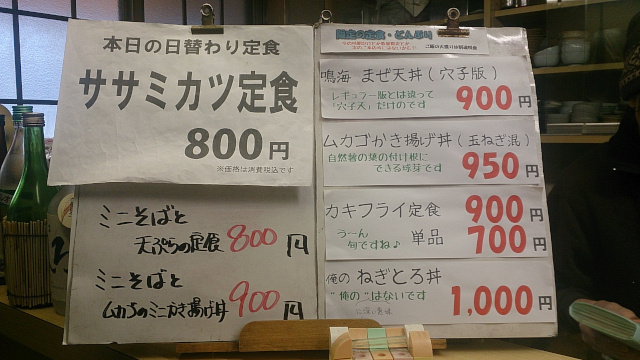 本日の日替わり定食
ササミカツ定食
800円
※価格は消費税込です
ミニそばと
天ぷらの定食 800円
ミニそばと
ムカゴのミニかき揚げ丼 900円
限定の定食・どんぶり
鳴海 まぜ天丼(穴子版)
レギュラー版とは違って
「穴子天」だけのです
900円
ムカゴかき揚げ丼(玉ねぎ混)
自然薯の葉の付け根に
できる球芽です
950円
カキフライ定食 900円
う〜ん
旬ですね♪
単品 700円
俺の ねぎとろ丼
"俺の"はないです
1,000円